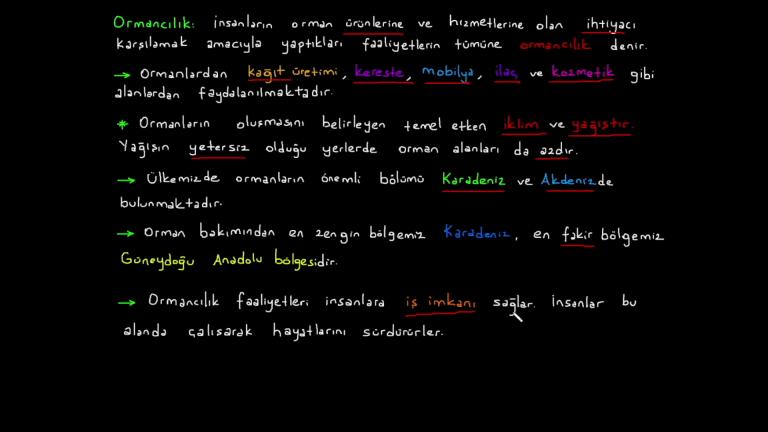 Ormancılık: insanların orman ürünlerine ve hizmetlerine olan ihtiyacı
karşılamak amacıyla yaptıkları faaliyetlerin tümüne ormancılık denir.
→ Ormanlardan kağıt üretimi, kereste, mobilya, ilaç ve kozmetik gibi
alanlardan faydalanılmaktadır.
* Ormanların oluşmasını belirleyen temel etken iklim ve yağıştır.
Yağışın yetersiz olduğu yerlerde orman alanları da azdır.
→ Ülkemizde ormanların önemli bölümü Karadeniz ve Akdenizde
bulunmaktadır.
→ Orman bakımından en zengin bölgemiz Karadeniz, en fakir bölgemiz
Güneydoğu Anadolu bölgesidir.
→ Ormancılık faaliyetleri insanlara iş imkanı sağlar. İnsanlar bu
alanda çalışarak hayatlarını sürdürürler.